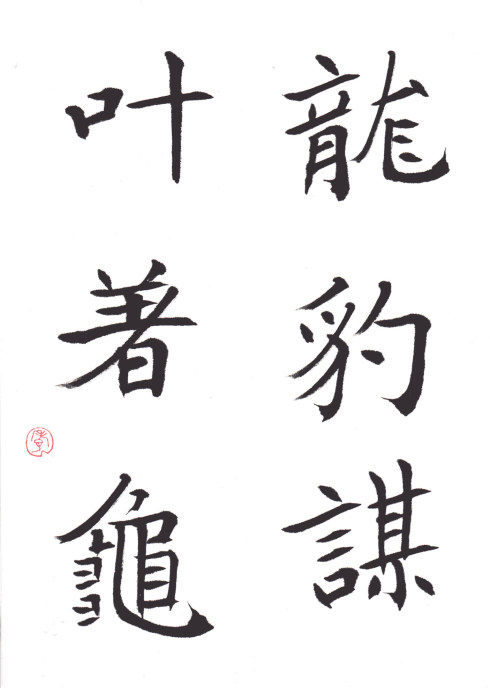 龍豹謀
叶著龜